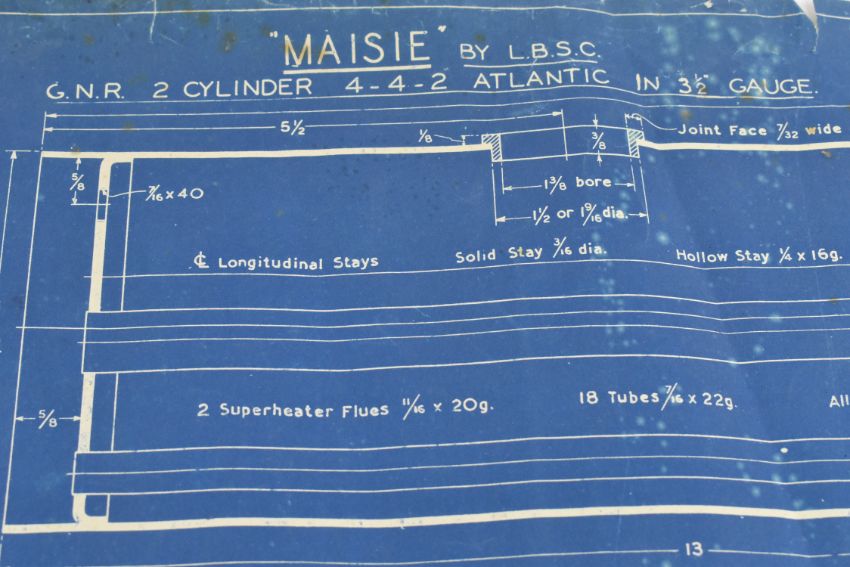 "MAISIE" BY L.B.S.C.
G.N.R. 2 CYLINDER 4-4-2 ATLANTIC IN 3½" GAUGE.
5½
⅛
⅜
Joint Face 7/32 wide
⅝
7/16 x 40
1⅜ bore
1½ or 1 9/16 dia.
℄ Longitudinal Stays
Solid Stay 3/16 dia.
Hollow Stay ¼ x 16g.
⅝
2 Superheater Flues 11/16 x 20g.
18 Tubes 7/16 x 22g.
All
13